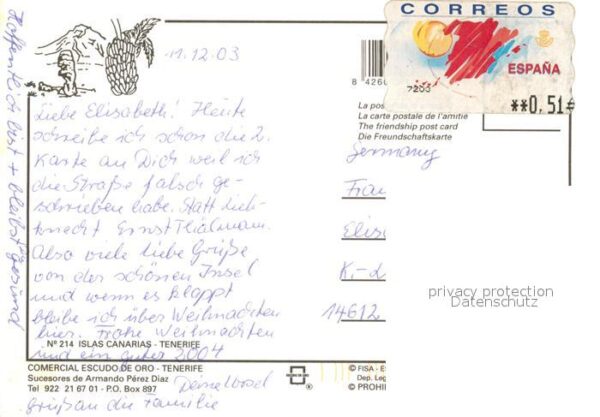 Hoffentlich bist + bleibst Du gesund
11.12.03
Liebe Elisabeth! Heute
schreibe ich schon die 2.
Karte an Dich weil ich
die Straße falsch ge-
schrieben habe. Statt Lieb-
knecht Ernst Thälmann.
Also viele liebe Grüße
von der schönen Insel
und wenn es klappt
bleibe ich über Weihnachten
hier. Frohe Weihnachten
und ein gutes 2004
Deine
Gruß an die Familie
Nº 214 ISLAS CANARIAS - TENERIFE
COMERCIAL ESCUDO DE ORO - TENERIFE
Sucesores de Armando Pérez Diaz
Tel 922 21 67 01 - P.O. Box 897
CORREOS
ESPAÑA
7203
**0,51€
8 4260
La pos
La carte postale de l'amitie
The friendship post card
Die Freundschaftskarte
Germany
Frau
Elis
K.-L
14612
privacy protection
Datenschutz
© FISA - ES
Dep. Leg
© PROHIB